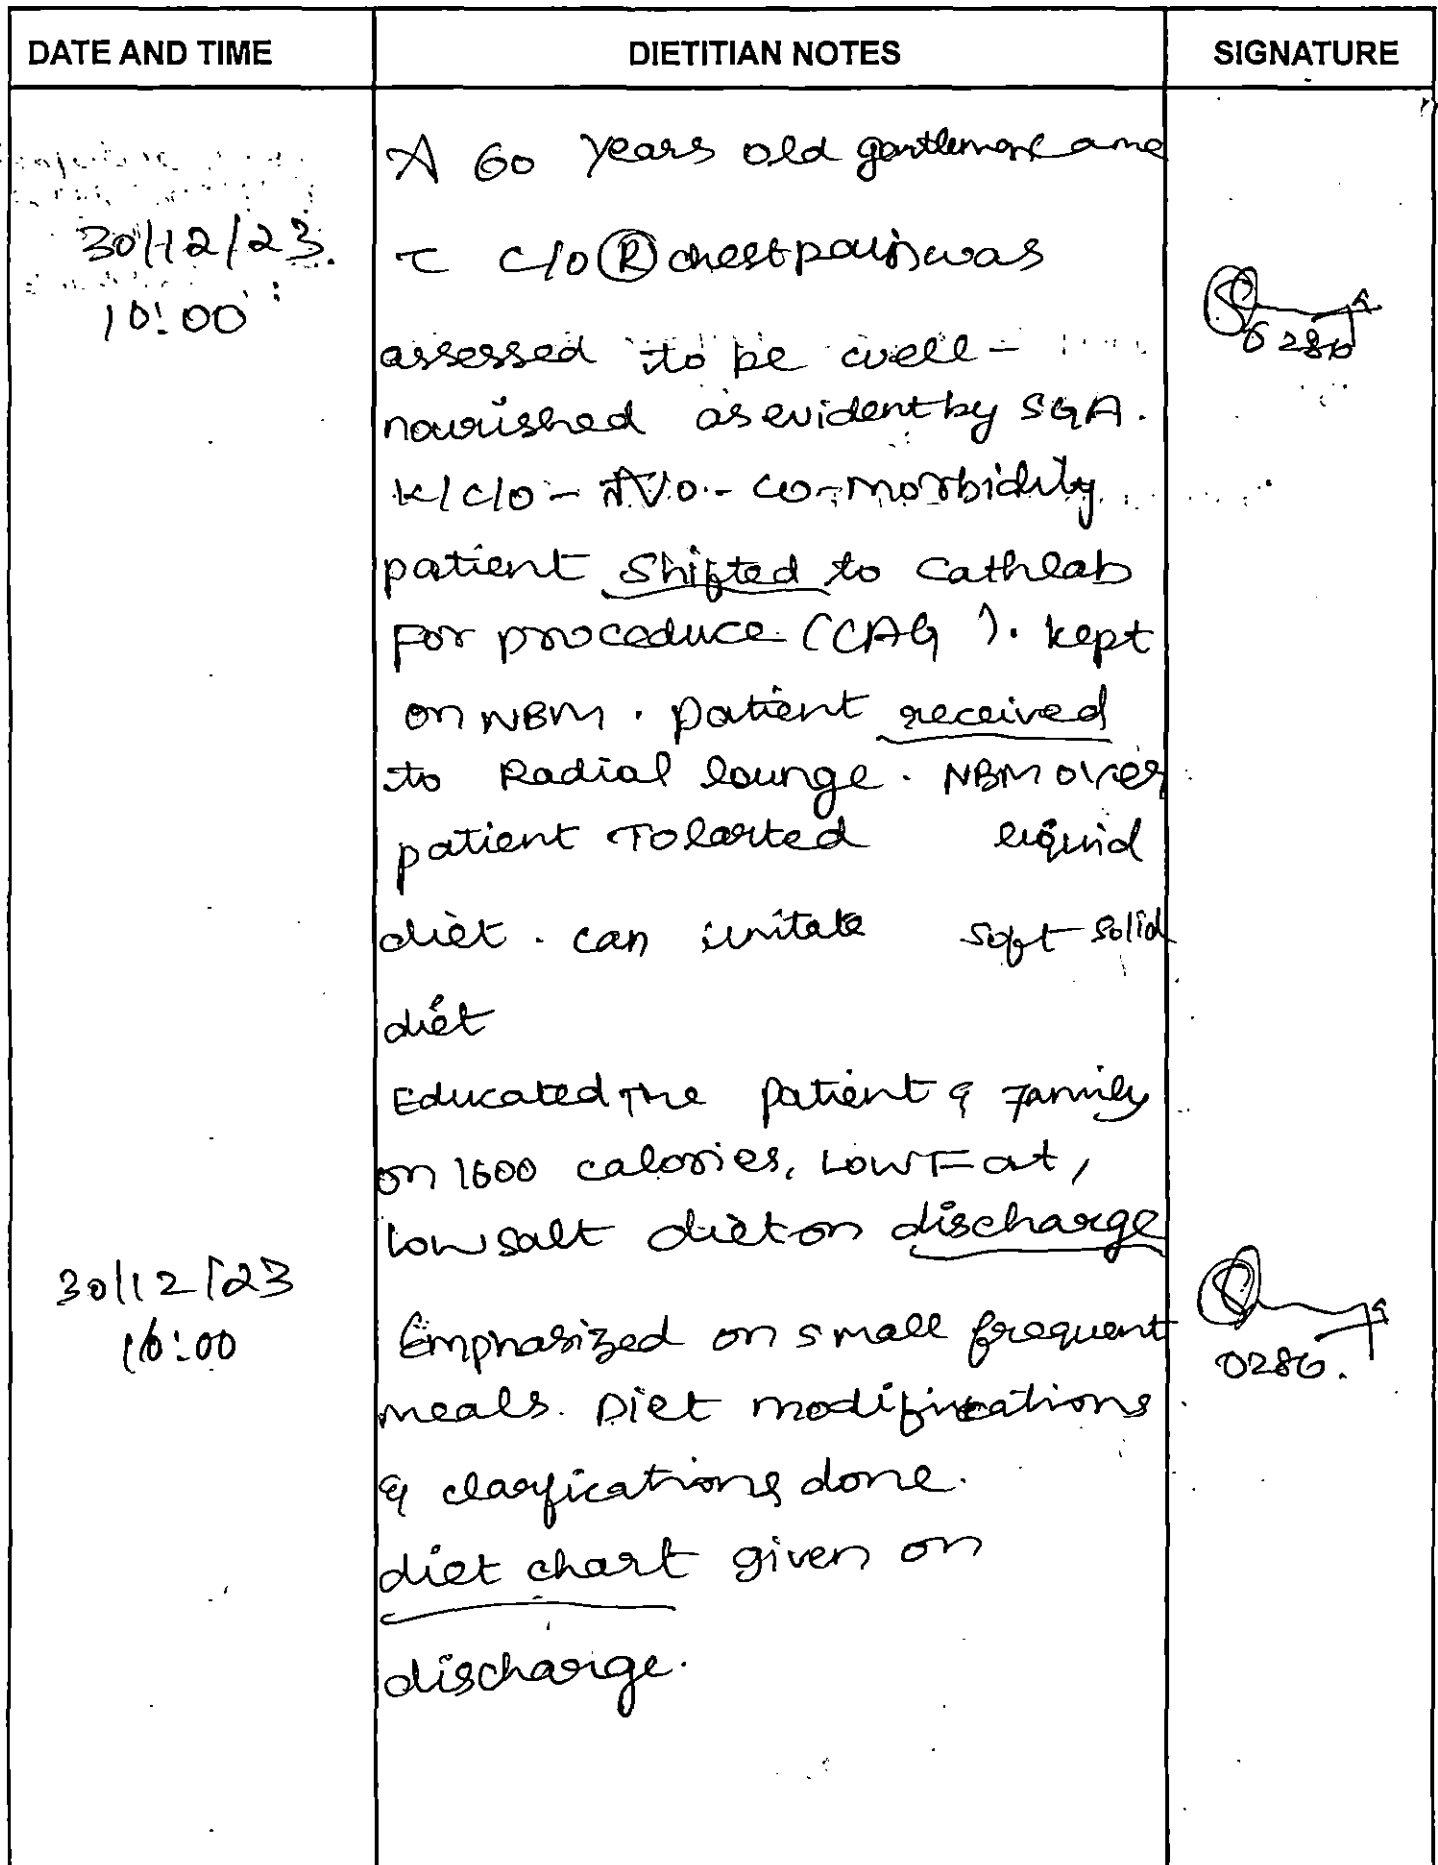 DATE AND TIME DIETITIAN NOTES SIGNATURE
A 60 years old gentleman came
30/12/23. c c/o Ⓡ chest pain was
10:00
assessed to be well-
nourished as evident by SGA.
K/C/O - No - co-morbidity
patient shifted to Cathlab
For proceduce (CAG). kept
on NBM. patient received
to Radial lounge. NBM over
patient Tolarted liquid
diet. can initate soft solid
diet
Educated The patient & Family
on 1600 calories, Low Fat,
low salt diet on discharge
30/12/23
16:00 Emphasized on small frequent
0286.
meals. Diet modifications
& clarfications done.
diet chart given on
discharge.